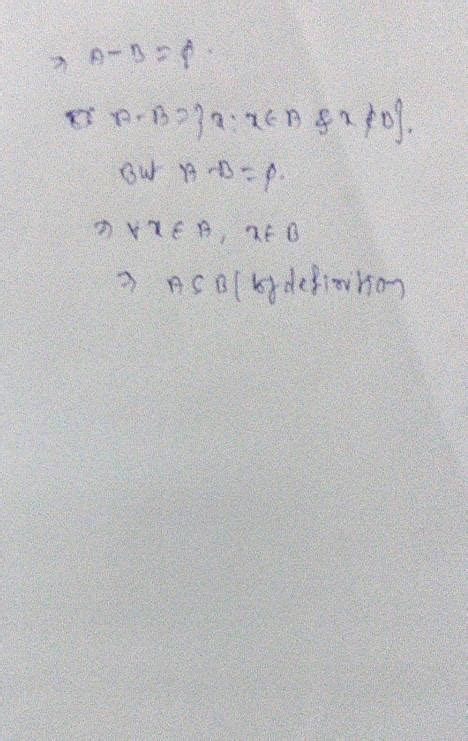 ⇒ A-B = φ.
A-B = {x : x ∈ A & x ∉ B}.
But A-B = φ.
⇒ ∀ x ∈ A, x ∈ B
⇒ A ⊂ B (by definition